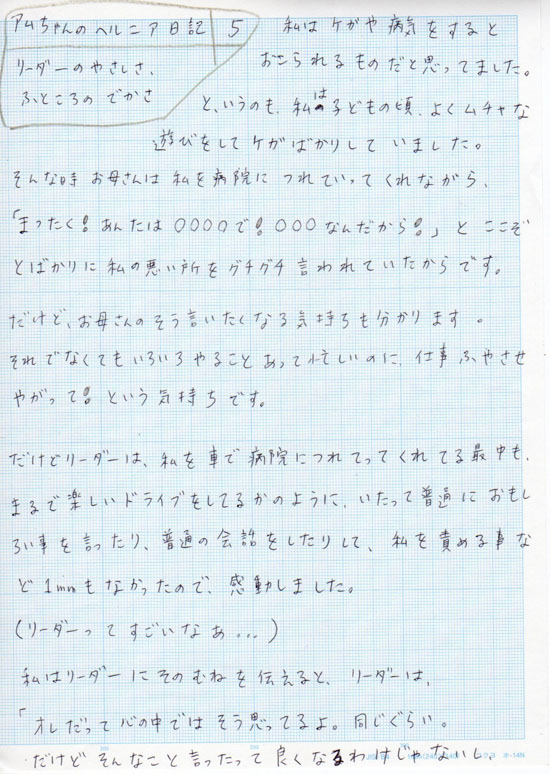 アムちゃんのヘルニア日記 5
リーダーのやさしさ、
ふところの でかさ
私は ケガや 病気をすると
おこられるものだと思ってました。
と、いうのも、私は子どもの頃、よくムチャな
遊びをしてケガばかりしていました。
そんな時 お母さんは 私を病院に つれていってくれながら、
「まったく!あんたは〇〇〇〇で!〇〇〇なんだから!」と ここぞ
とばかりに 私の悪い所をグチグチ 言われていたからです。
だけど、お母さんのそう言いたくなる気持ちも分かります。
それでなくてもいろいろやることあって忙しいのに、仕事ふやさせ
やがって!という気持ちです。
だけどリーダーは、私を車で病院につれてってくれてる最中も、
まるで楽しいドライブをしてるかのように、いたって普通に おもし
ろい事を言ったり、普通の会話をしたりして、私を責める事な
ど1mmもなかったので、感動しました。
(リーダーって すごいなぁ...)
私はリーダーにそのむねを伝えると、リーダーは、
「オレだって心の中ではそう思ってるよ。同じぐらい。
だけど そんなこと言ったって良くなるわけじゃないし、